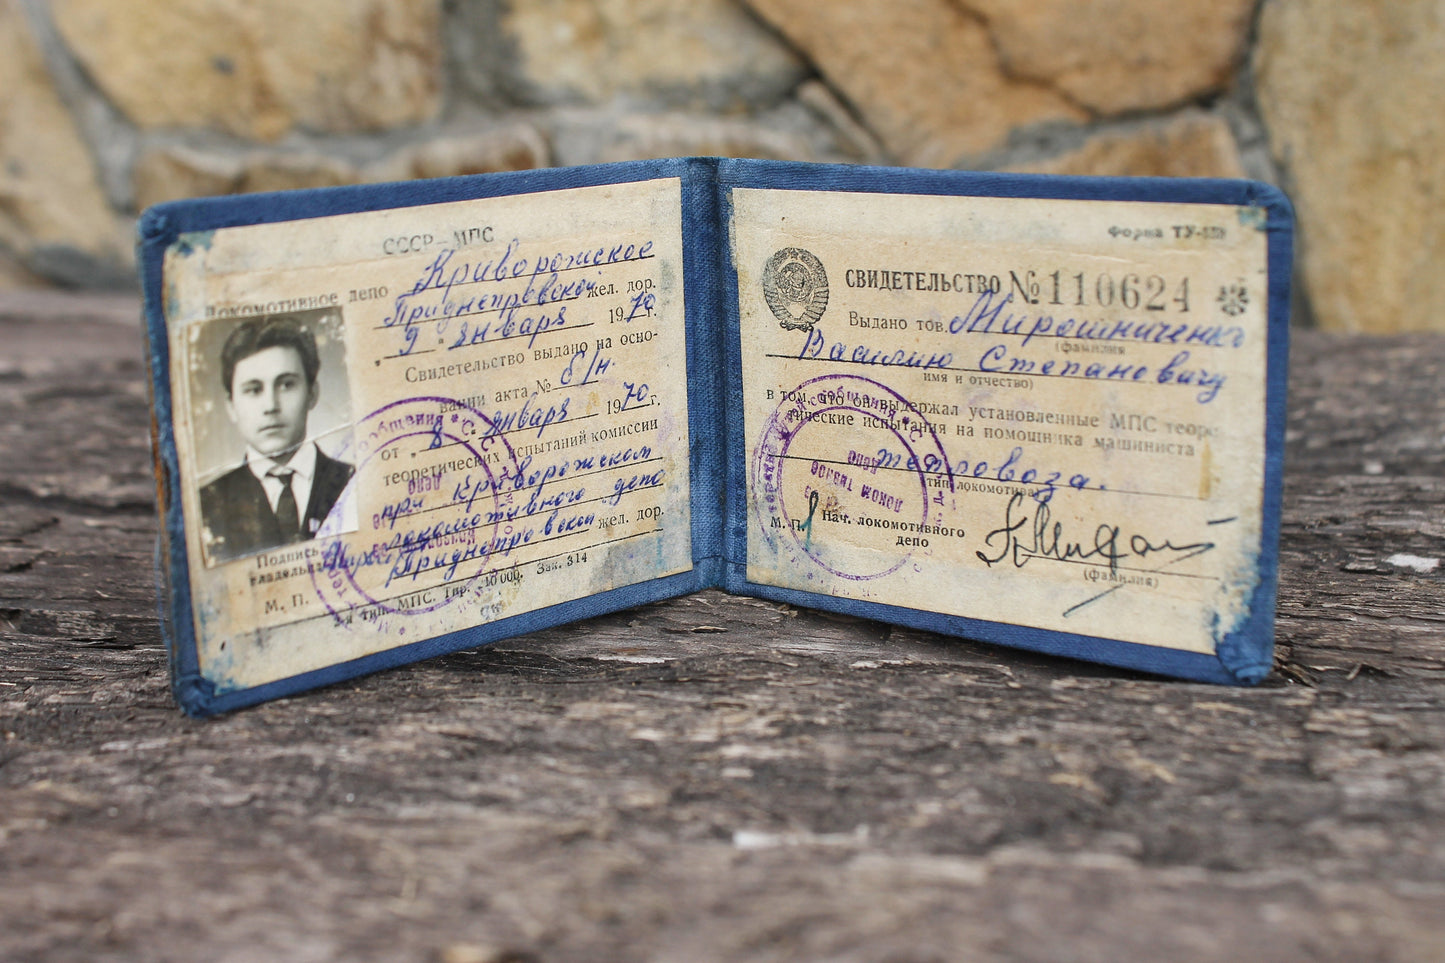 СССР–МПС
Локомотивное депо Криворожское
Приднепровской жел. дор.
„ 9 " января 1970 г.
Свидетельство выдано на осно-
вании акта № б/н.
от „ 8 " января 1970 г.
теоретических испытаний комиссии
при Криворожском
локомотивного депо
Приднепровской жел. дор.
Подпись
владельца
М. П.
2-я тип. МПС. Тир. 10 000. Зак. 314
Форма ТУ-
СВИДЕТЕЛЬСТВО № 110624
Выдано тов. Мирошниченко
(фамилия
Василию Степановичу
имя и отчество)
в том, что он выдержал установленные МПС теоре-
тические испытания на помощника машиниста
тепловоза.
тип локомотива
М. П. Нач. локомотивного
депо
(фамилия)